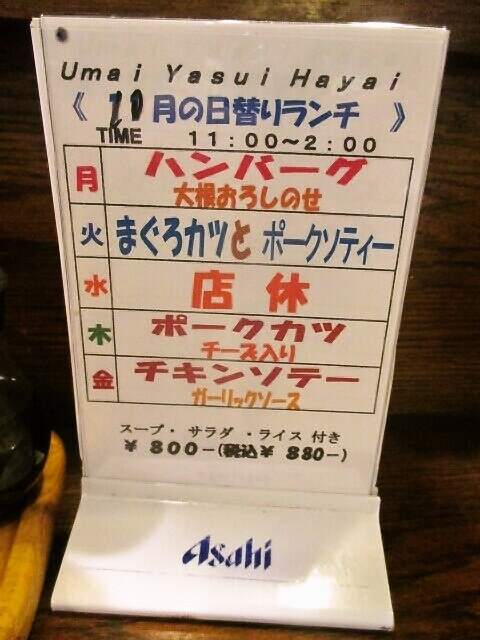 Umai Yasui Hayai
《 10月の日替りランチ 》
TIME 11:00～2:00
月 ハンバーグ
大根おろしのせ
火 まぐろカツと ポークソティー
水 店休
木 ポークカツ
チーズ入り
金 チキンソテー
ガーリックソース
スープ・サラダ・ライス 付き
￥800-(税込￥880-)
Asahi